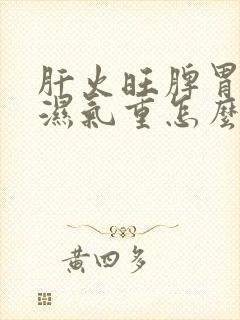 肝火旺脾胃
濕氣重怎麼
黃四多